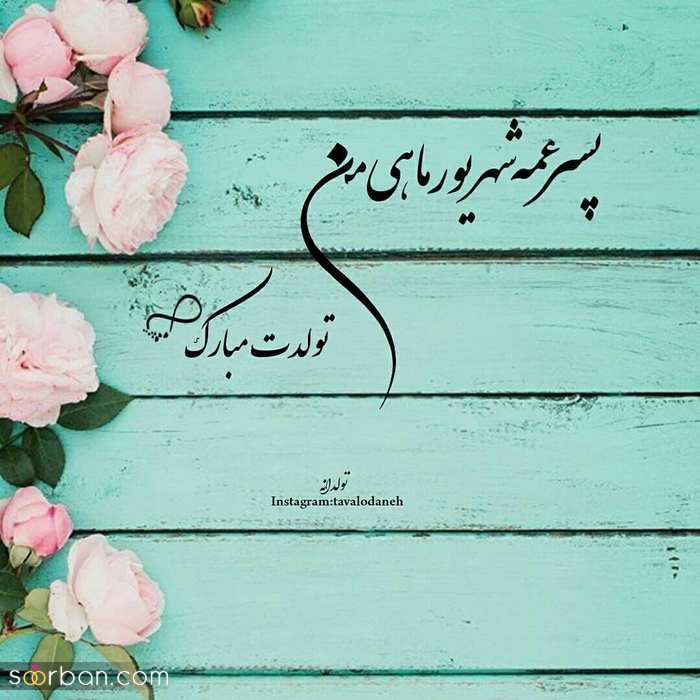 پسر عمه شهریور ماهی من
تولدت مبارک
تولدانه
Instagram:tavalodaneh
soorban.com